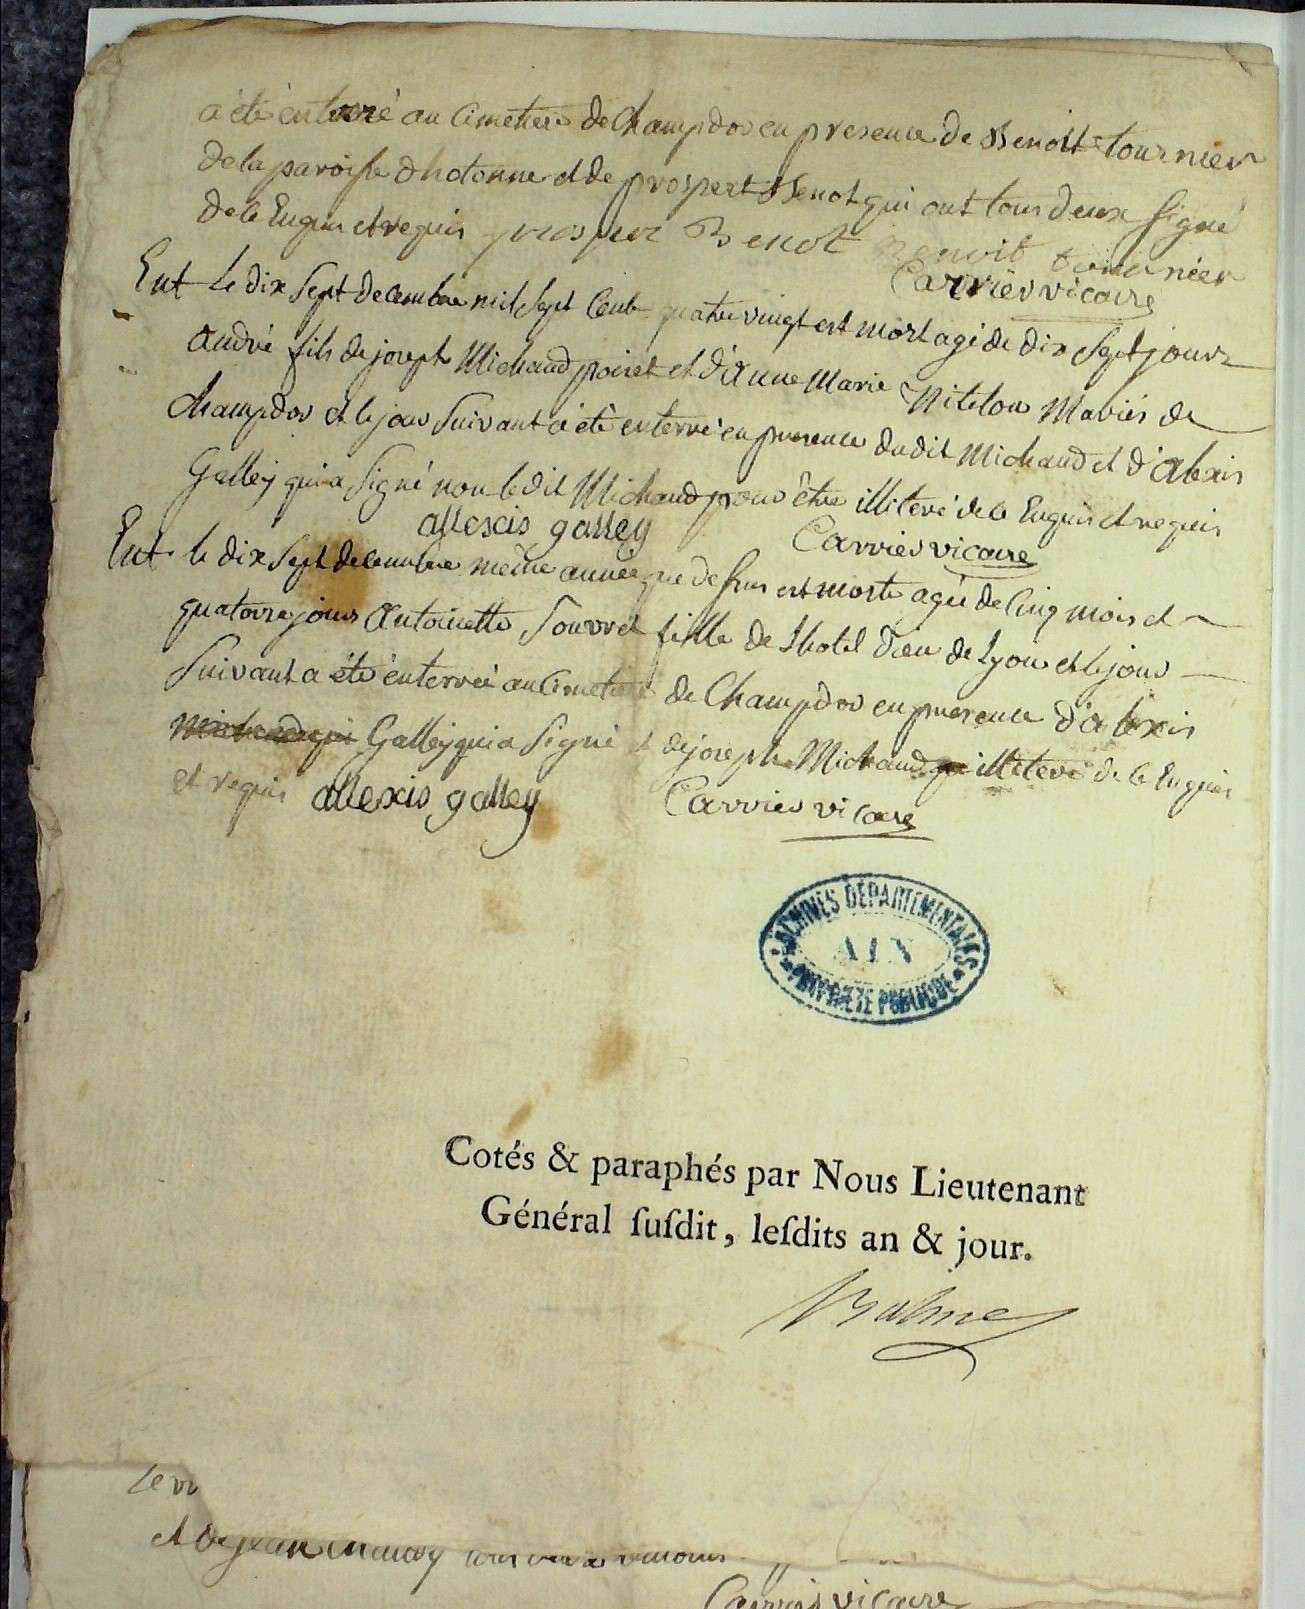 a été enterré au Cimetiere de Champdor en presence de Benoit tournier
de la paroisse dhotonne et de prospert Benot qui ont tous deux signé
de ce Enquis et requis prosper Benot benoit tournier
Carrier vicaire
Ent le dix sept decembre mil sept Cent quatre vingt est mort agé de dix sept jours
andré fils de joseph Michaud poiret et d'anne Marie Mariés de
Champdor et le jour suivant a été enterré en presence du dit Michaud et d'alexis
Galley qui a signé non le dit Michaud pour être illiteré de ce Enquis et requis
allexcis galley Carrier vicaire
Ent le dix sept decembre même année que dessus est morte agée de Cinq mois et
quatorze jours Antoinette fille de Lhotel dieu de Lyon et le jour
suivant a été enterrée au Cimetiere de Champdor en presence d'alexis
Galley qui a signé et de joseph Michaud illiteré de ce Enquis
et requis allexis galley Carrier vicaire
ARCHIVES DÉPARTEMENTALES
AIN
PROPRIÉTÉ PUBLIQUE
Cotés & paraphés par Nous Lieutenant
Général ſuſdit, leſdits an & jour.
Balme
et de jean
Carrier vicaire